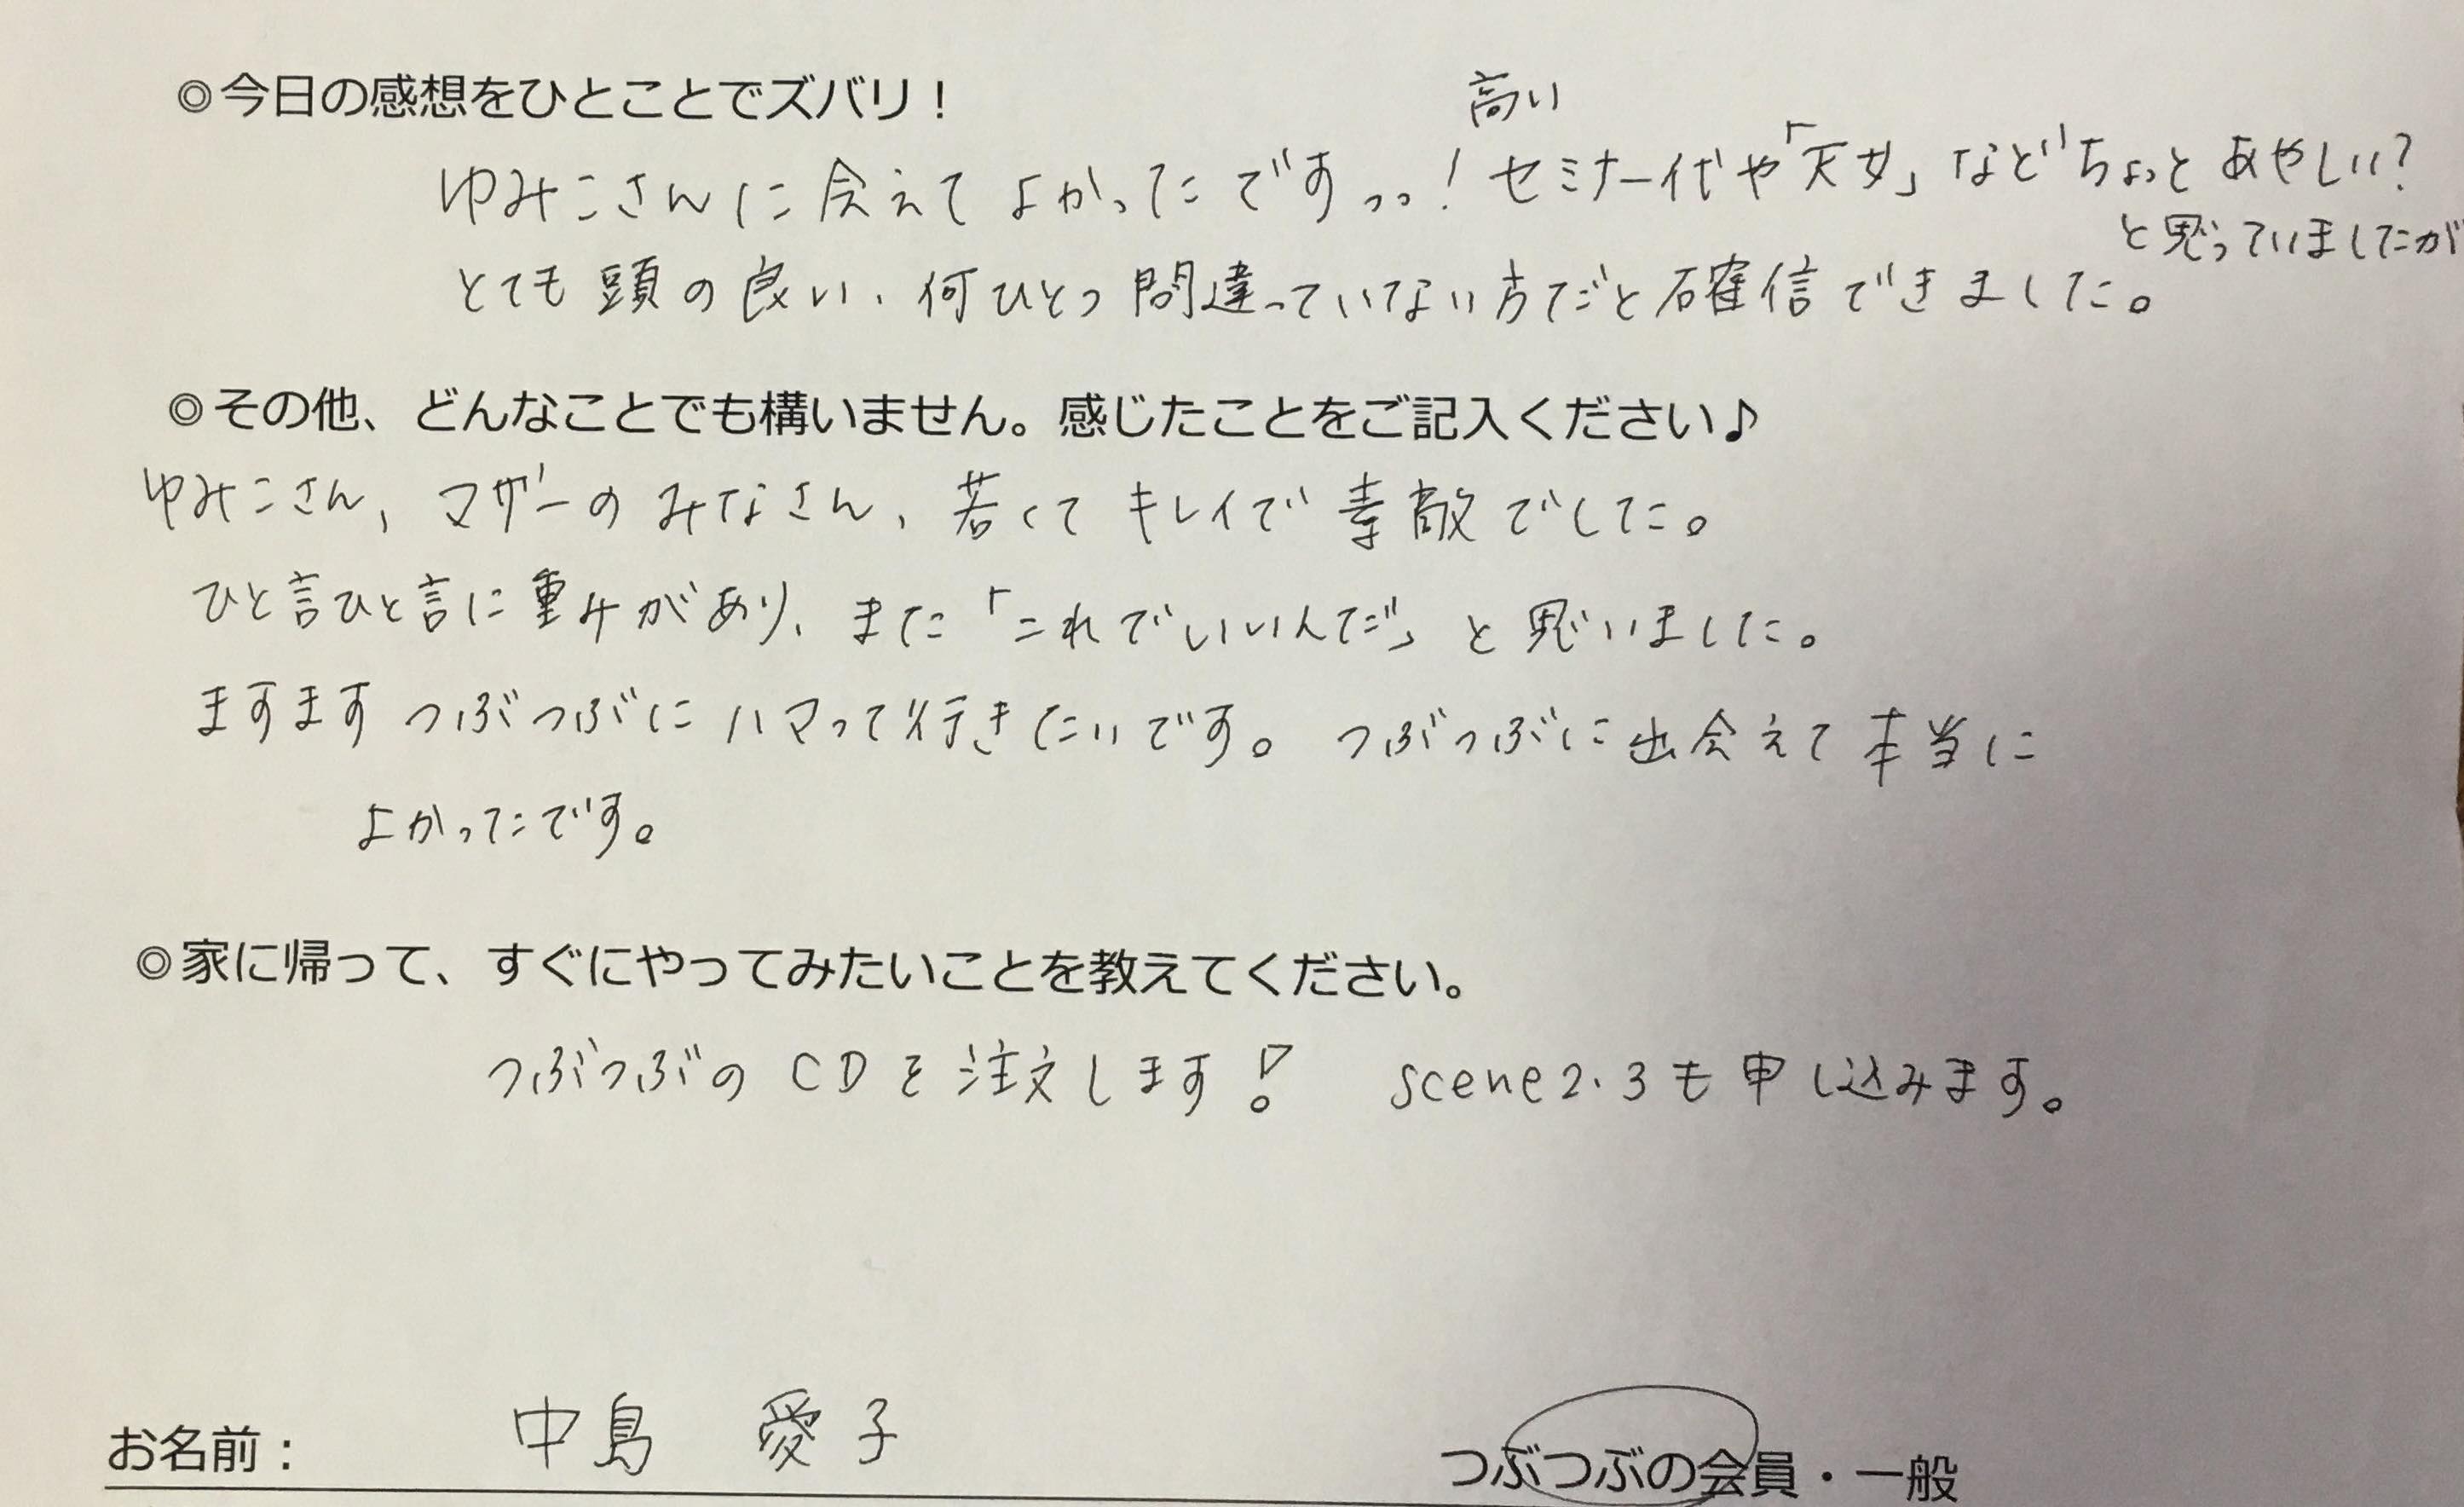 ◎今日の感想をひとことでズバリ！
高い
ゆみこさんに会えてよかったですっっ。！ セミナー代や「天女」など ちょっと あやしい？
と思っていましたが
とても頭の良い、何ひとつ間違っていない方だと確信できました。
◎その他、どんなことでも構いません。感じたことをご記入ください♪
ゆみこさん、マザーのみなさん、若くてキレイで素敵でした。
ひと言ひと言に重みがあり、また「これでいいんだ」と思いました。
ますますつぶつぶにハマって行きたいです。 つぶつぶに出会えて本当に
よかったです。
◎家に帰って、すぐにやってみたいことを教えてください。
つぶつぶのCDを注文します！ scene2.3も申し込みます。
お名前： 中島 愛子 つぶつぶの会員・一般